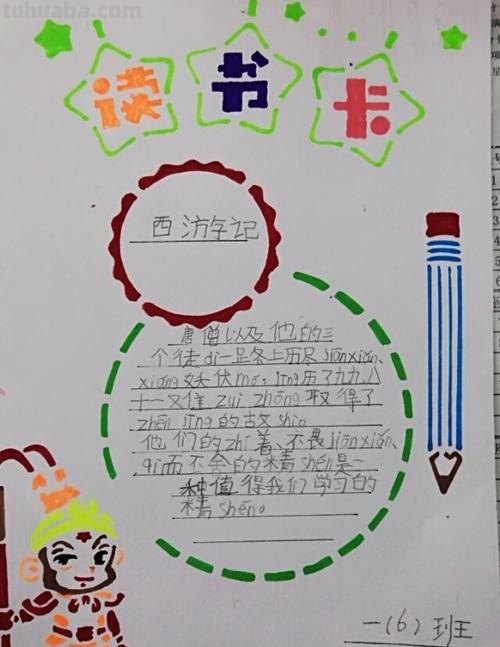 tuhuaba.com
读书卡
西游字记
唐僧以及他的三
个徒di一足各上历尽jiānxiǎn、
xiáng妖伏mó，jīng历了九九八
十一又佳zuì zhōng取得了
zhēn jīng的故shi。
他们的zhí着、不畏jiānxiǎn、
qì而不舍的精shén是一
种值得我们学习的
精shén。
一（6）班